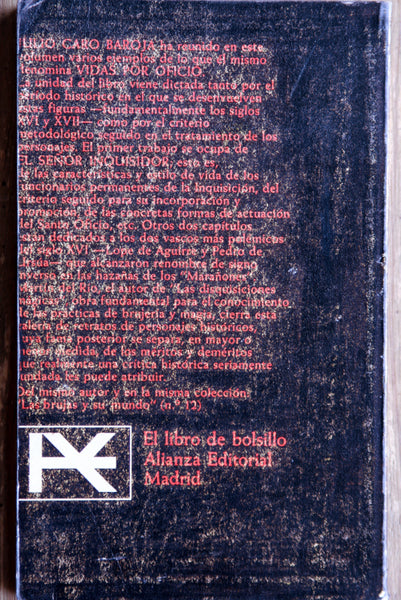 JULIO CARO BAROJA ha reunido en este
volumen varios ejemplos de lo que él mismo
denomina VIDAS POR OFICIO
La unidad del libro viene dictada tanto por el
período histórico en el que se desenvuelven
estas figuras —fundamentalmente los siglos
XVI y XVII— como por el criterio
metodológico seguido en el tratamiento de los
personajes. El primer trabajo se ocupa de
EL SEÑOR INQUISIDOR, esto es,
de las características y estilo de vida de los
funcionarios permanentes de la Inquisición, del
criterio seguido para su incorporación y
promoción, de las concretas formas de actuación
del Santo Oficio, etc. Otros dos capítulos
están dedicados a los dos vascos más polémicos
del siglo XVI —Lope de Aguirre y Pedro de
Ursúa— que alcanzaron renombre de signo
inverso en las hazañas de los "Marañones".
Martín del Río, el autor de "Las disquisiciones
mágicas", obra fundamental para el conocimiento
de las prácticas de brujería y magia, cierra esta
galería de retratos de personajes históricos,
cuya fama posterior se separa, en mayor o
menor medida, de los méritos y deméritos
que realmente una crítica histórica seriamente
fundada les puede atribuir.
Del mismo autor y en la misma colección:
"Las brujas y su mundo" (n.º 12)
El libro de bolsillo
Alianza Editorial
Madrid